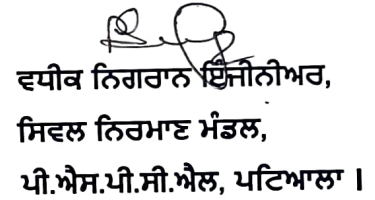 ਵਧੀਕ ਨਿਗਰਾਨ ਇੰਜੀਨੀਅਰ,
ਸਿਵਲ ਨਿਰਮਾਣ ਮੰਡਲ,
ਪੀ.ਐਸ.ਪੀ.ਸੀ.ਐਲ, ਪਟਿਆਲਾ ।